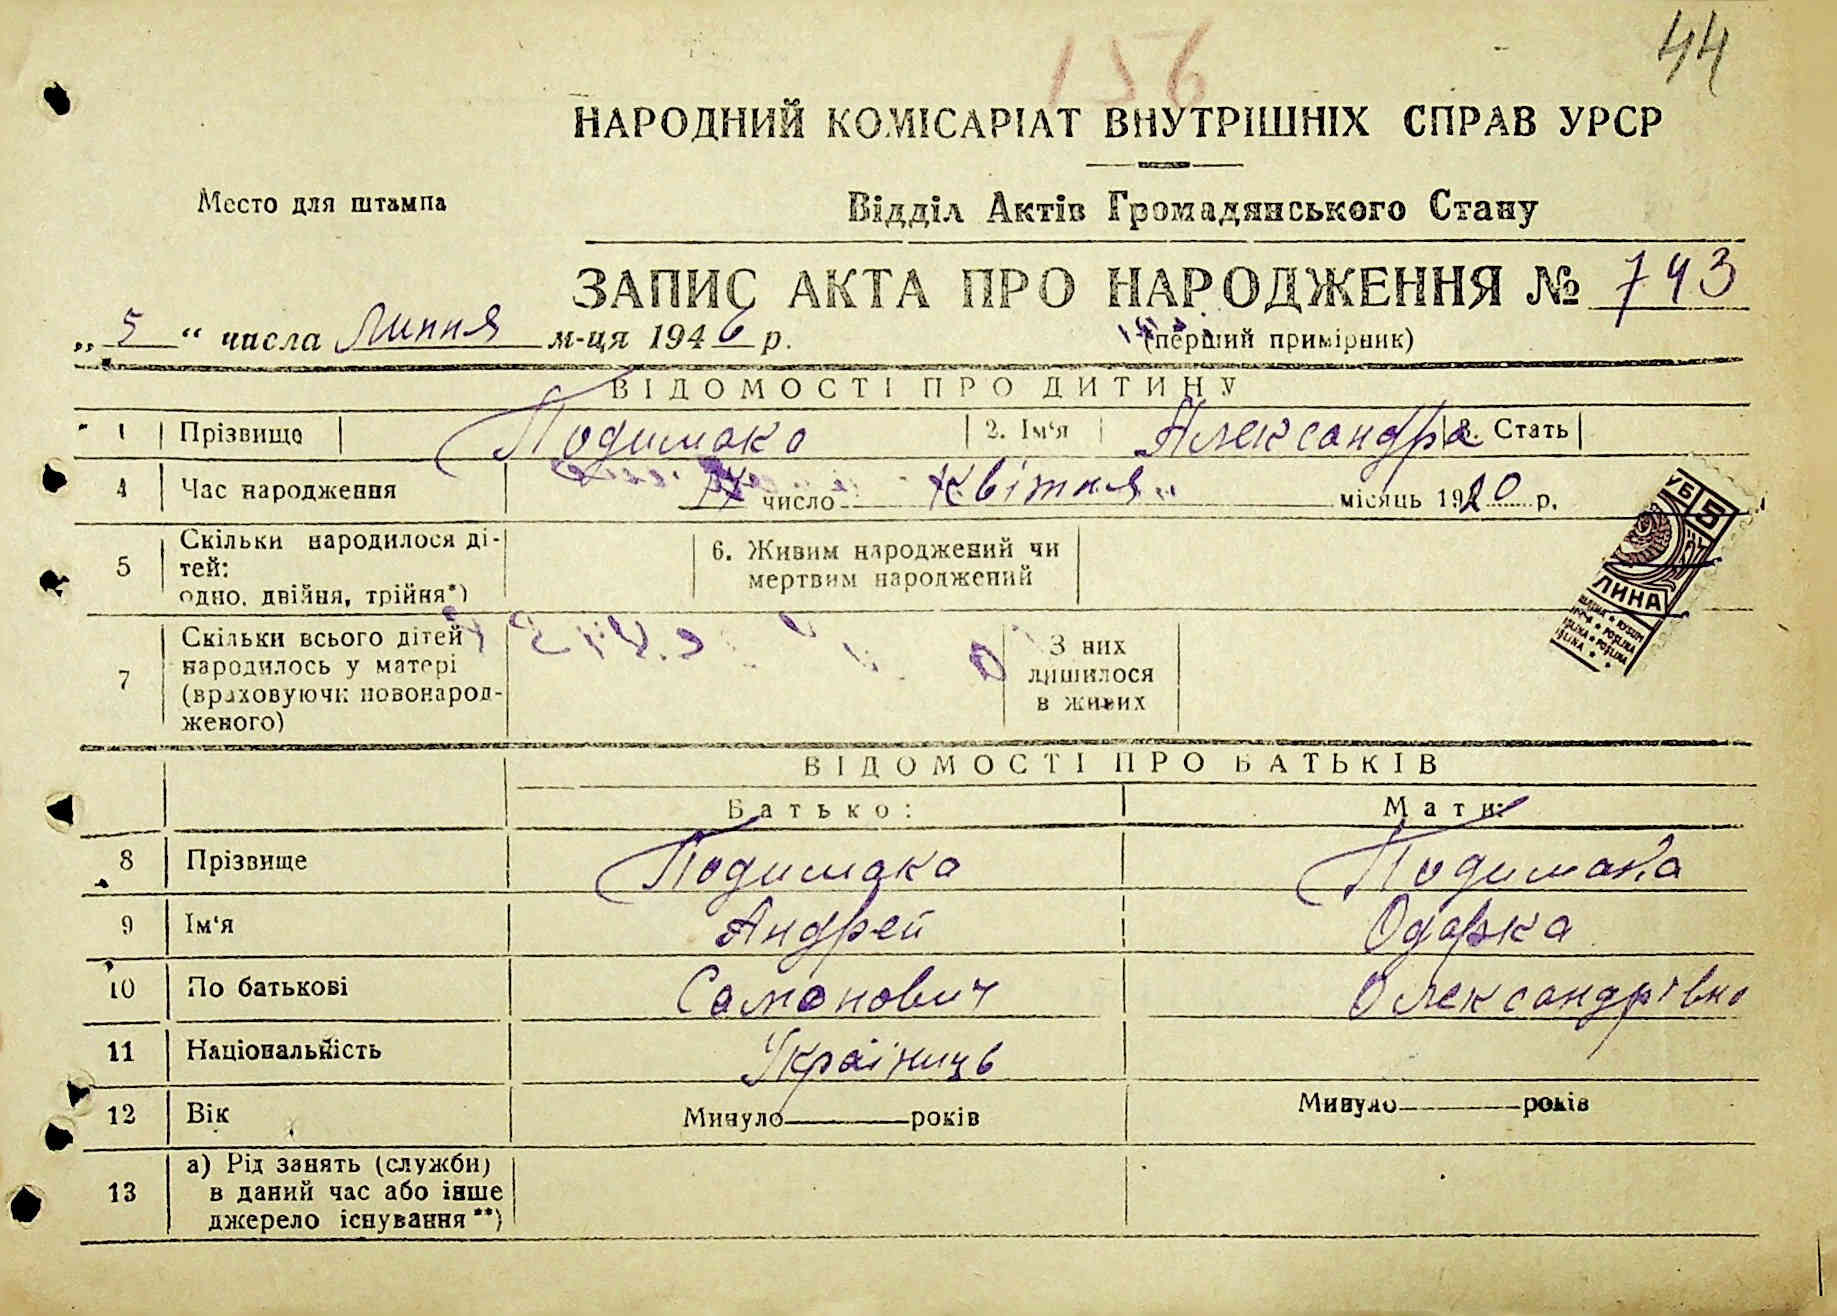 156
44
НАРОДНИЙ КОМІСАРІАТ ВНУТРІШНІХ СПРАВ УРСР
Место для штампа
Відділ Актів Громадянського Стану
ЗАПИС АКТА ПРО НАРОДЖЕННЯ № 743
„ 5 “ числа Липня м-ця 1946 р.
(перший примірник)
ВІДОМОСТІ ПРО ДИТИНУ
1 Прізвище Подимака 2. Ім'я Александра 3. Стать
4 Час народження 17 число Квітня місяць 1920 р.
5 Скільки народилося ді-
тей:
одно, двійня, трійня*)
6. Живим народжений чи
мертвим народжений
7 Скільки всього дітей
народилось у матері
(враховуючи новонарод-
женого)
З них
лишилося
в живих
УБ 5
ЛИНА
ВІДОМОСТІ ПРО БАТЬКІВ
Батько: Мати:
8 Прізвище Подимака Подимака
9 Ім'я Андрей Одарка
10 По батькові Самонович Олександрівна
11 Національність Україниць
12 Вік Минуло років Минуло років
13 а) Рід занять (служби)
в даний час або інше
джерело існування**)